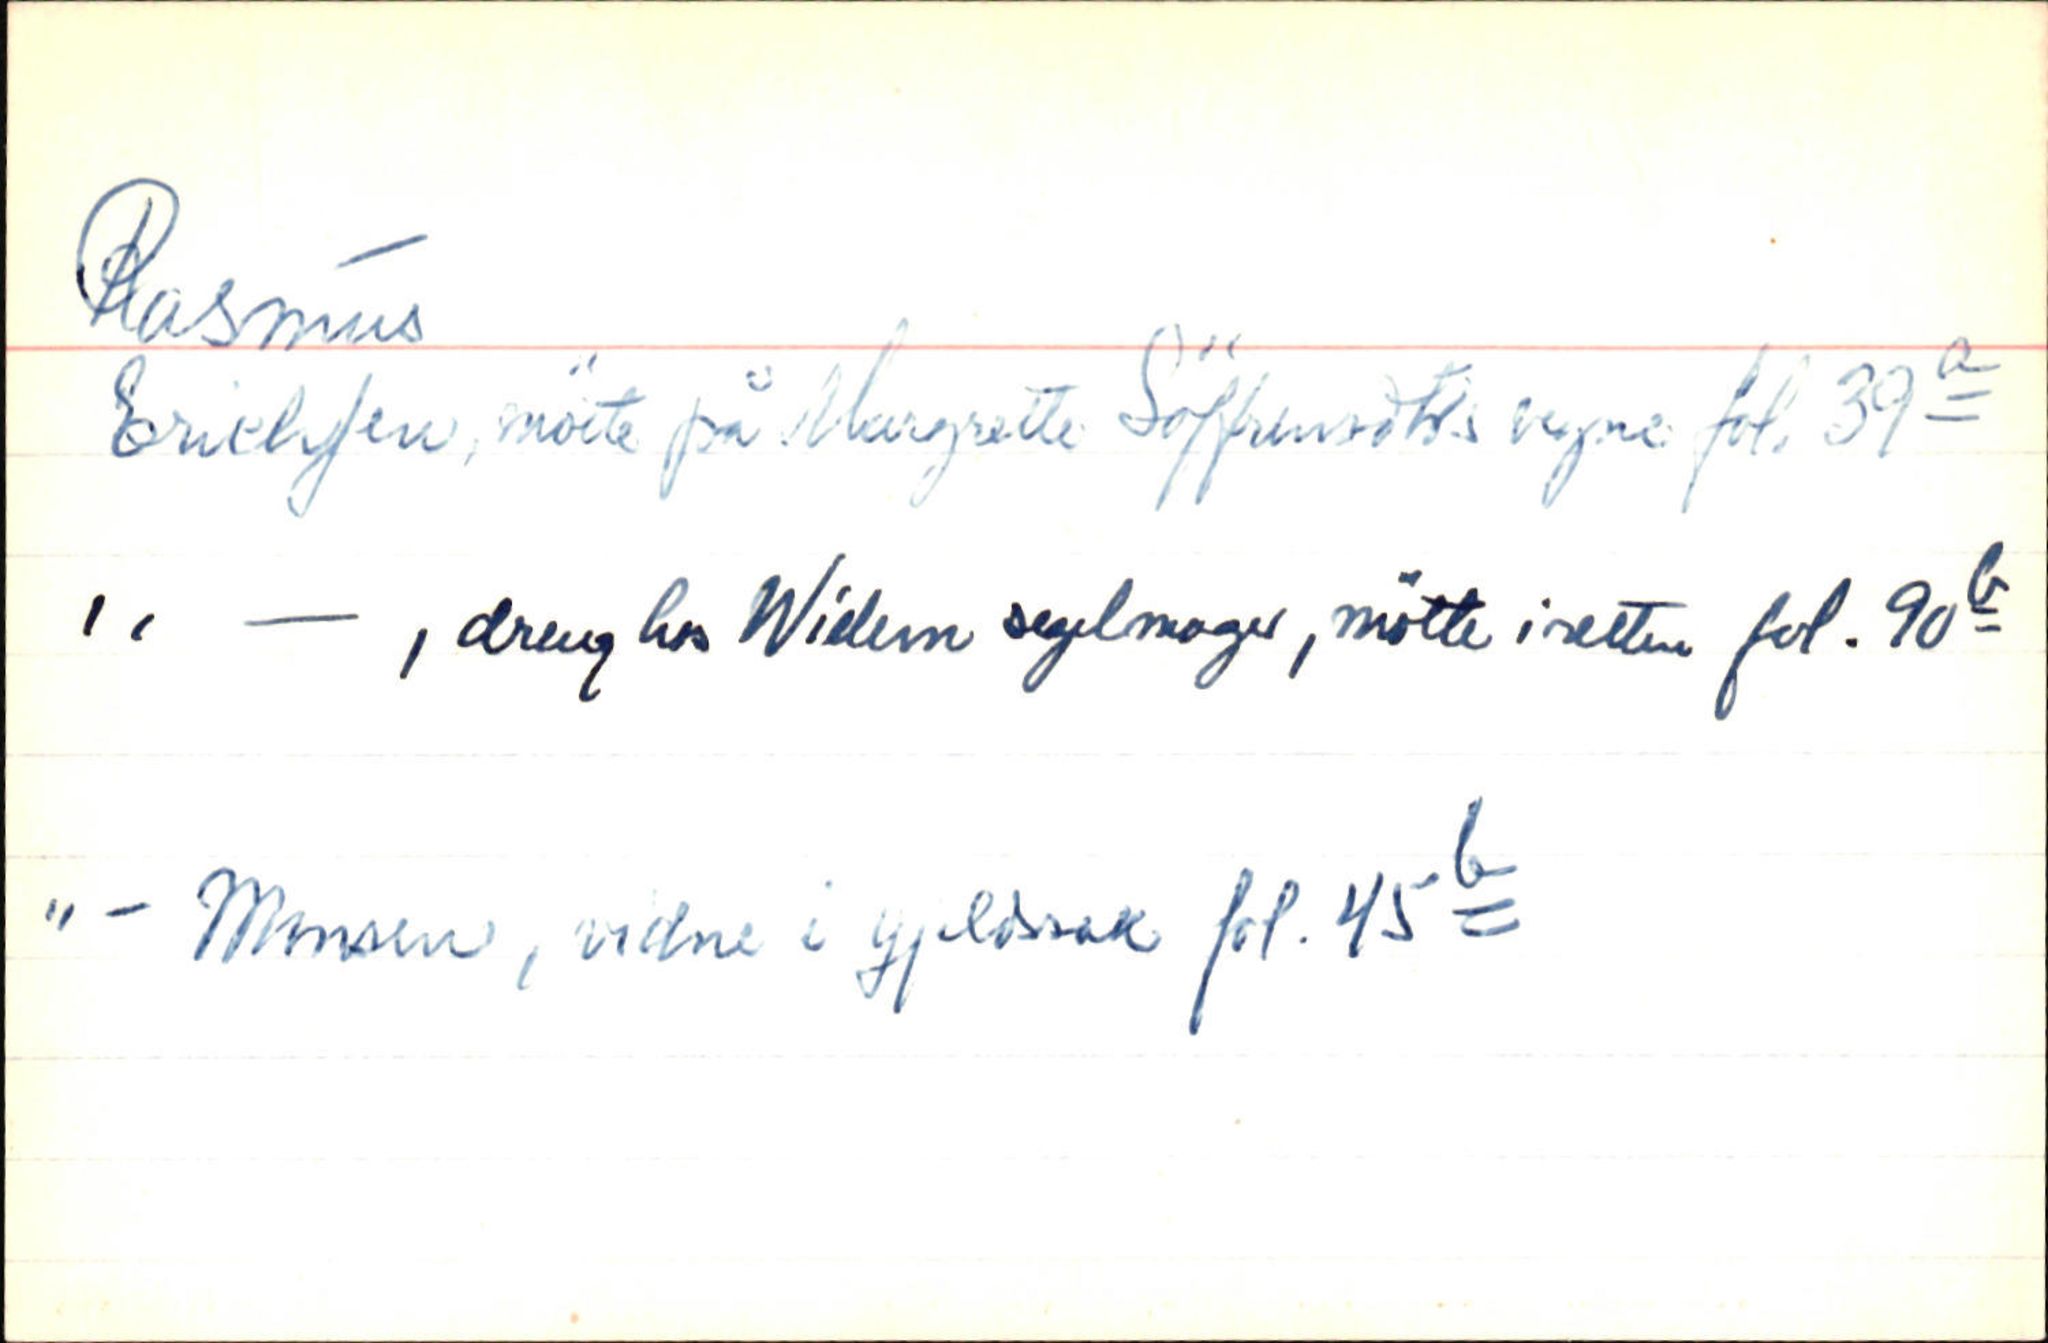 Rasmus
Erichsen, mötte på Margrette Söffrensdtrs vegne fol. 39a
" — , dreng hos Widem segelmager, mötte i retten fol. 90b
" - Monsen, vidne i gjeldssak fol. 45b